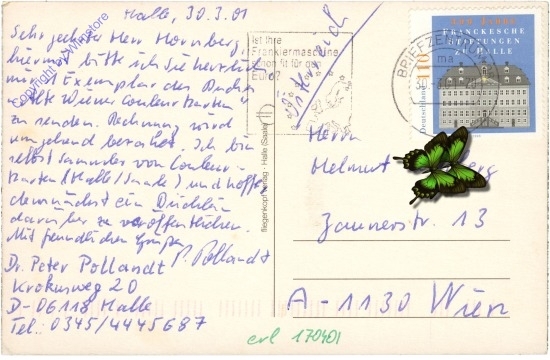 Halle, 30.3.01
Sehr geehrter Herr Hornberg,
hiermit bitte ich Sie herzlich
mir 1 Exemplar des Buches
"Alte Wiener Couleurkarten"
zu senden. Rechnung wird
umgehend bezahlt. Ich bin
selbst Sammler von Couleur-
karten (Halle/Saale) und hoffe
demnächst ein Büchlein
darüber zu veröffentlichen.
Mit freundlichen Grüßen
P. Pollandt
Dr. Peter Pollandt
Krokusweg 20
D-06118 Halle
Tel.: 0345/4445687
Copyright by
fliegenkopf verlag · Halle (Saale)
Ist Ihre
Frankiermaschine
schon fit für den
Euro?
Österreich
BRIEFZENTRUM
ma
FRANCKESCHE
STIFTUNGEN
ZU HALLE
Deutschland
110
Herrn
Helmut
Zaunerstr. 13
A-1130 Wien
erl 170401